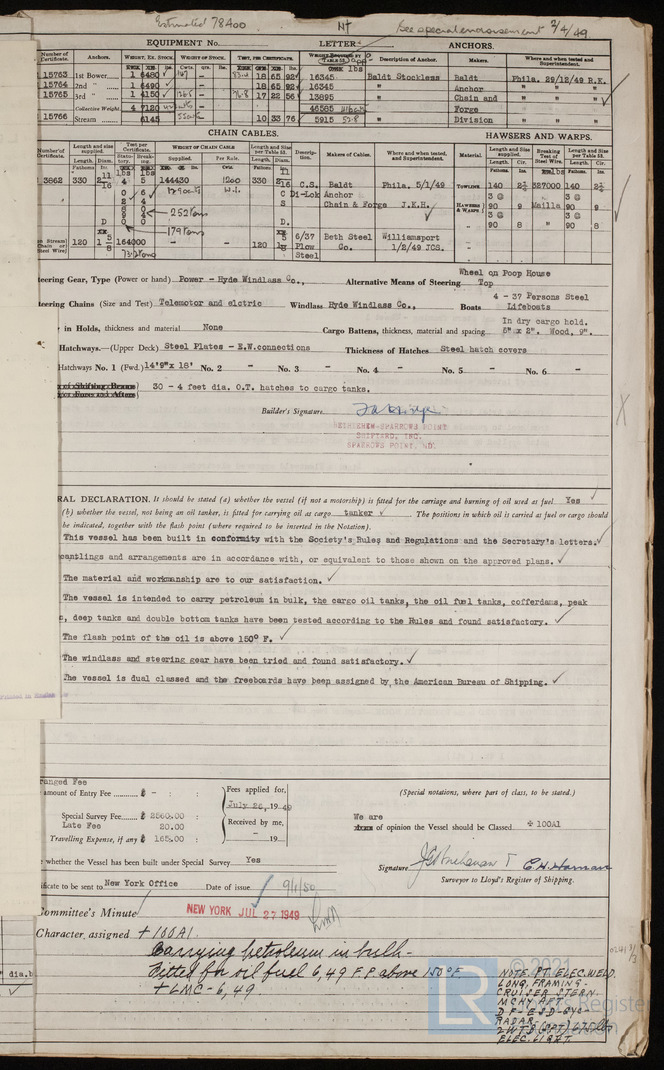 Estimated 78400 NT See special endorsement 2/4/49.
EQUIPMENT No. LETTER ANCHORS.
Number of Certificate. Anchors. WEIGHT, EX. STOCK. WEIGHT OF STOCK. TEST, PER CERTIFICATE. WEIGHT REQUIRED BY TABLE 53. Description of Anchor. Makers. Where and when tested and Superintendent.
15763 1st Bower 1 6480 18 65 92 16345 Baldt Stockless Baldt Phila. 29/12/49 R.K.
15764 2nd " 1 6490 18 65 92 16345 " Anchor "
15765 3rd " 1 4150 17 22 56 13895 " Chain and "
Collective Weight. 4 7120 46585 Forge
15766 Stream 6145 10 33 76 5915 " Division "
CHAIN CABLES. HAWSERS AND WARPS.
Length and size supplied. Test per Certificate. WEIGHT OF CHAIN CABLE Length and Size per Table 53. Description. Makers of Cables. Where and when tested, and Superintendent. Material. Length and Size supplied. Breaking Test of Steel Wire. Length and Size per Table 53.
Length. Diam. Statutory. Breaking. Supplied. Per Rule. Length. Diam. Length. Cir. Length. Cir.
3862 330 2 11/16 144430 1260 330 2 11/16 C.S. Baldt Phila. 5/1/49 TOWLINE 140 327000 140
W.I. C Di-Lok Anchor 3 @ 3 @
S Chain & Forge J.K.H. HAWSERS & WARPS 90 9 Manilla 90 9
252tons 3 @ 3 @
D D. " 90 8 " 90 8
179tons
120 1 5/8 164000 - - 120 1 5/8 6/37 Beth Steel Williamsport
73.2tons Plow Co. 1/2/49 JCS.
Steel
Steering Gear, Type (Power or hand) Power - Hyde Windlass Co., Alternative Means of Steering Wheel on Poop House Top
Steering Chains (Size and Test) Telemotor and elctric Windlass Hyde Windlass Co., Boats 4 - 37 Persons Steel Lifeboats
in Holds, thickness and material None Cargo Battens, thickness, material and spacing In dry cargo hold. 6"x 2". Wood, 9".
Hatchways.—(Upper Deck) Steel Plates - E.W.connections Thickness of Hatches Steel hatch covers
Hatchways No. 1 (Fwd.) 14'9"x 18' No. 2 - No. 3 - No. 4 - No. 5 - No. 6 -
30 - 4 feet dia. O.T. hatches to cargo tanks.
Builder's Signature
BETHLEHEM-SPARROWS POINT
SHIPYARD, INC.
SPARROWS POINT, MD.
RAL DECLARATION. It should be stated (a) whether the vessel (if not a motorship) is fitted for the carriage and burning of oil used as fuel Yes
(b) whether the vessel, not being an oil tanker, is fitted for carrying oil as cargo tanker. The positions in which oil is carried as fuel or cargo should
be indicated, together with the flash point (where required to be inserted in the Notation).
This vessel has been built in conformity with the Society's Rules and Regulations and the Secretary's letters.
cantlings and arrangements are in accordance with, or equivalent to those shown on the approved plans.
The material and workmanship are to our satisfaction.
The vessel is intended to carry petroleum in bulk, the cargo oil tanks, the oil fuel tanks, cofferdams, peak
deep tanks and double bottom tanks have been tested according to the Rules and found satisfactory.
The flash point of the oil is above 150° F.
The windlass and steering gear have been tried and found satisfactory.
The vessel is dual classed and the freeboards have been assigned by the American Bureau of Shipping.
ranged Fee
amount of Entry Fee $ - : Fees applied for, July 26, 1949
(Special notations, where part of class, to be stated.)
Special Survey Fee $ 2860.00 :
Late Fee 20.00 Received by me,
Travelling Expense, if any $ 165.00 : - 19
We are
of opinion the Vessel should be Classed ✠ 100A1
whether the Vessel has been built under Special Survey Yes
Signature J G Buchanan C.H. Haman
Surveyor to Lloyd's Register of Shipping.
ificate to be sent to New York Office Date of issue 9/1/50
Committee's Minute NEW YORK JUL 27 1949
Character assigned +100A1.
Carrying petroleum in bulk-
Fitted for oil fuel 6,49 F.P. above 150°F.
+LMC-6,49
NOTE PT. ELEC. WELD.
LONG. FRAMING-
CRUISER STERN.
MCHY AFT.
DF-ESD-GYC-
RADAR-
2WTB (SPT) 675 lb
ELEC. LIGHT.
dia.b
LR © 2021
Lloyd's Register